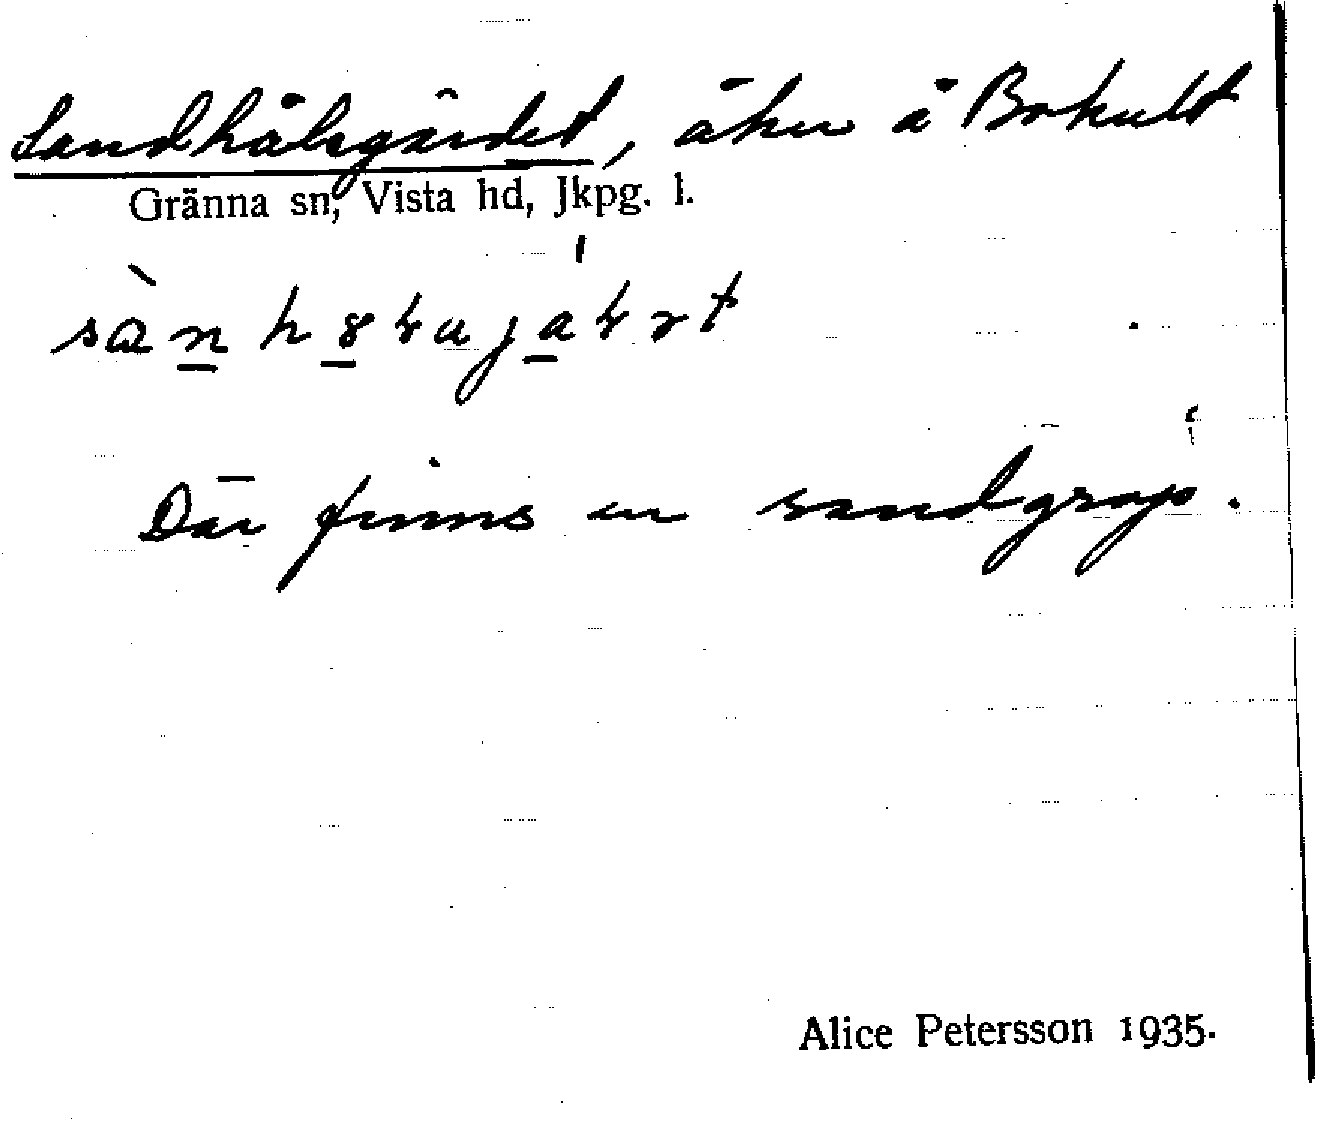 Sandhålsgärdet, åker å Bokult
Gränna sn, Vista hd, Jkpg. l.
Där finns en sandgrop.
Alice Petersson 1935.